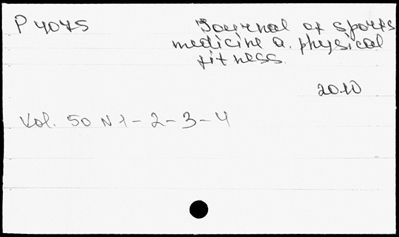 P 4045
Journal of sports
medicine a. physical
fitness.
2010
Vol. 50 N 1-2-3-4